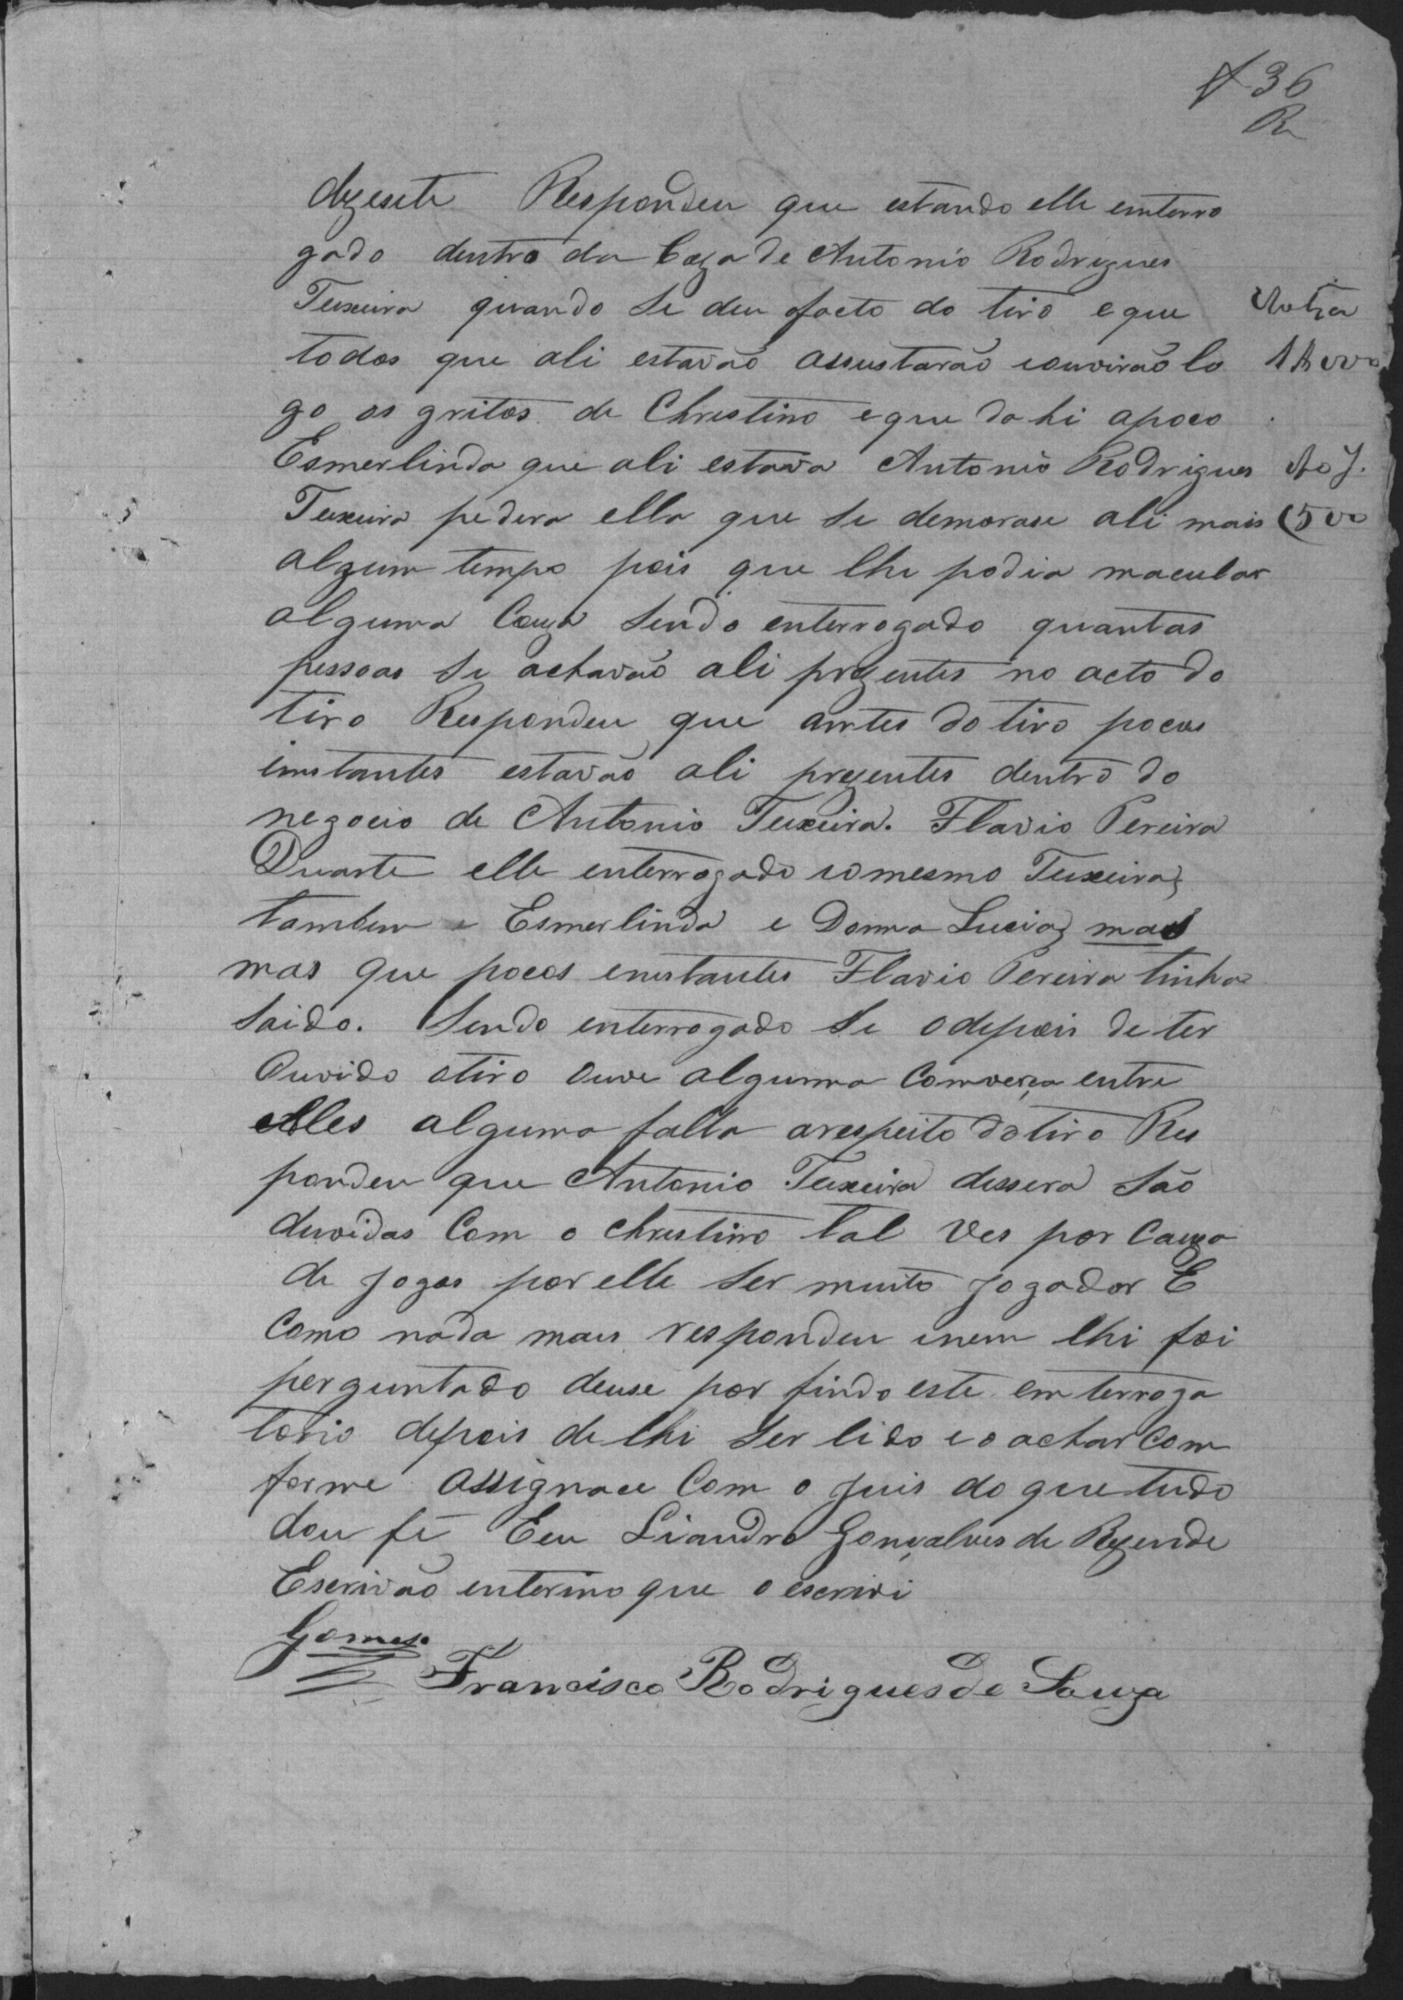 36
R
dezesete Respondeu que estando elle enterro
gado dentro da Caza de Antonio Rodrigues
Teixeira quando se deu o facto do tiro e que
todos que ali estavão assustarão e ouvirão lo
go os gritos de Christino e que dahi a poco
Esmerlinda que ali estava Antonio Rodrigues
Teixeira pedera ella que se demorase ali mais
algum tempo pois que lhe podia macular
alguma Couza Sendo enterrogado quantas
pessoas se achavão ali prezentes no acto do
tiro Respondeu que antes do tiro pocos
instantes estavão ali prezentes dentro do
negocio de Antonio Teixeira. Flavio Pereira
Duarte elle enterrogado e o mesmo Teixeira,
tambem e Esmerlinda e Donna Lucia, mas
mas que pocos enstantes Flavio Pereira tinha
saido. Sendo enterrogado se o depois de ter
Ouvido o tiro Ouve algumma Comverça entre
elles alguma falla a respeito do tiro Res
pondeu que Antonio Teixeira dissera São
duvidas Com o Christino tal Ves por Cauza
de jogos por elle ser muito jogador E
Como nada mais respondeu e nem lhi foi
perguntado deuse por findo este emterroga
torio depois de lhi ser lido e o achar Com
forme assignace Com o juis do que tudo
dou fé Eeu Liandro Gonçalves de Rezende
Escrivão enterino que o escrivi
Gomes
Francisco Rodrigues de Souza